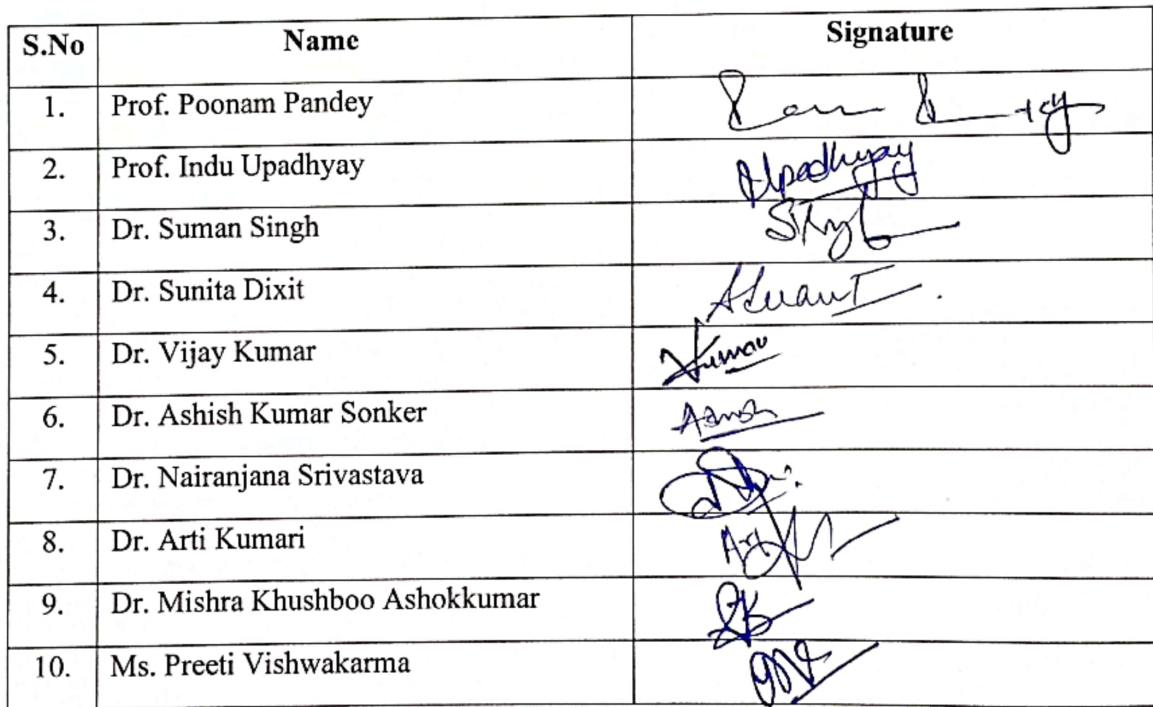 S.No Name Signature
1. Prof. Poonam Pandey
2. Prof. Indu Upadhyay Upadhyay
3. Dr. Suman Singh
4. Dr. Sunita Dixit
5. Dr. Vijay Kumar Kumar
6. Dr. Ashish Kumar Sonker
7. Dr. Nairanjana Srivastava
8. Dr. Arti Kumari
9. Dr. Mishra Khushboo Ashokkumar
10. Ms. Preeti Vishwakarma